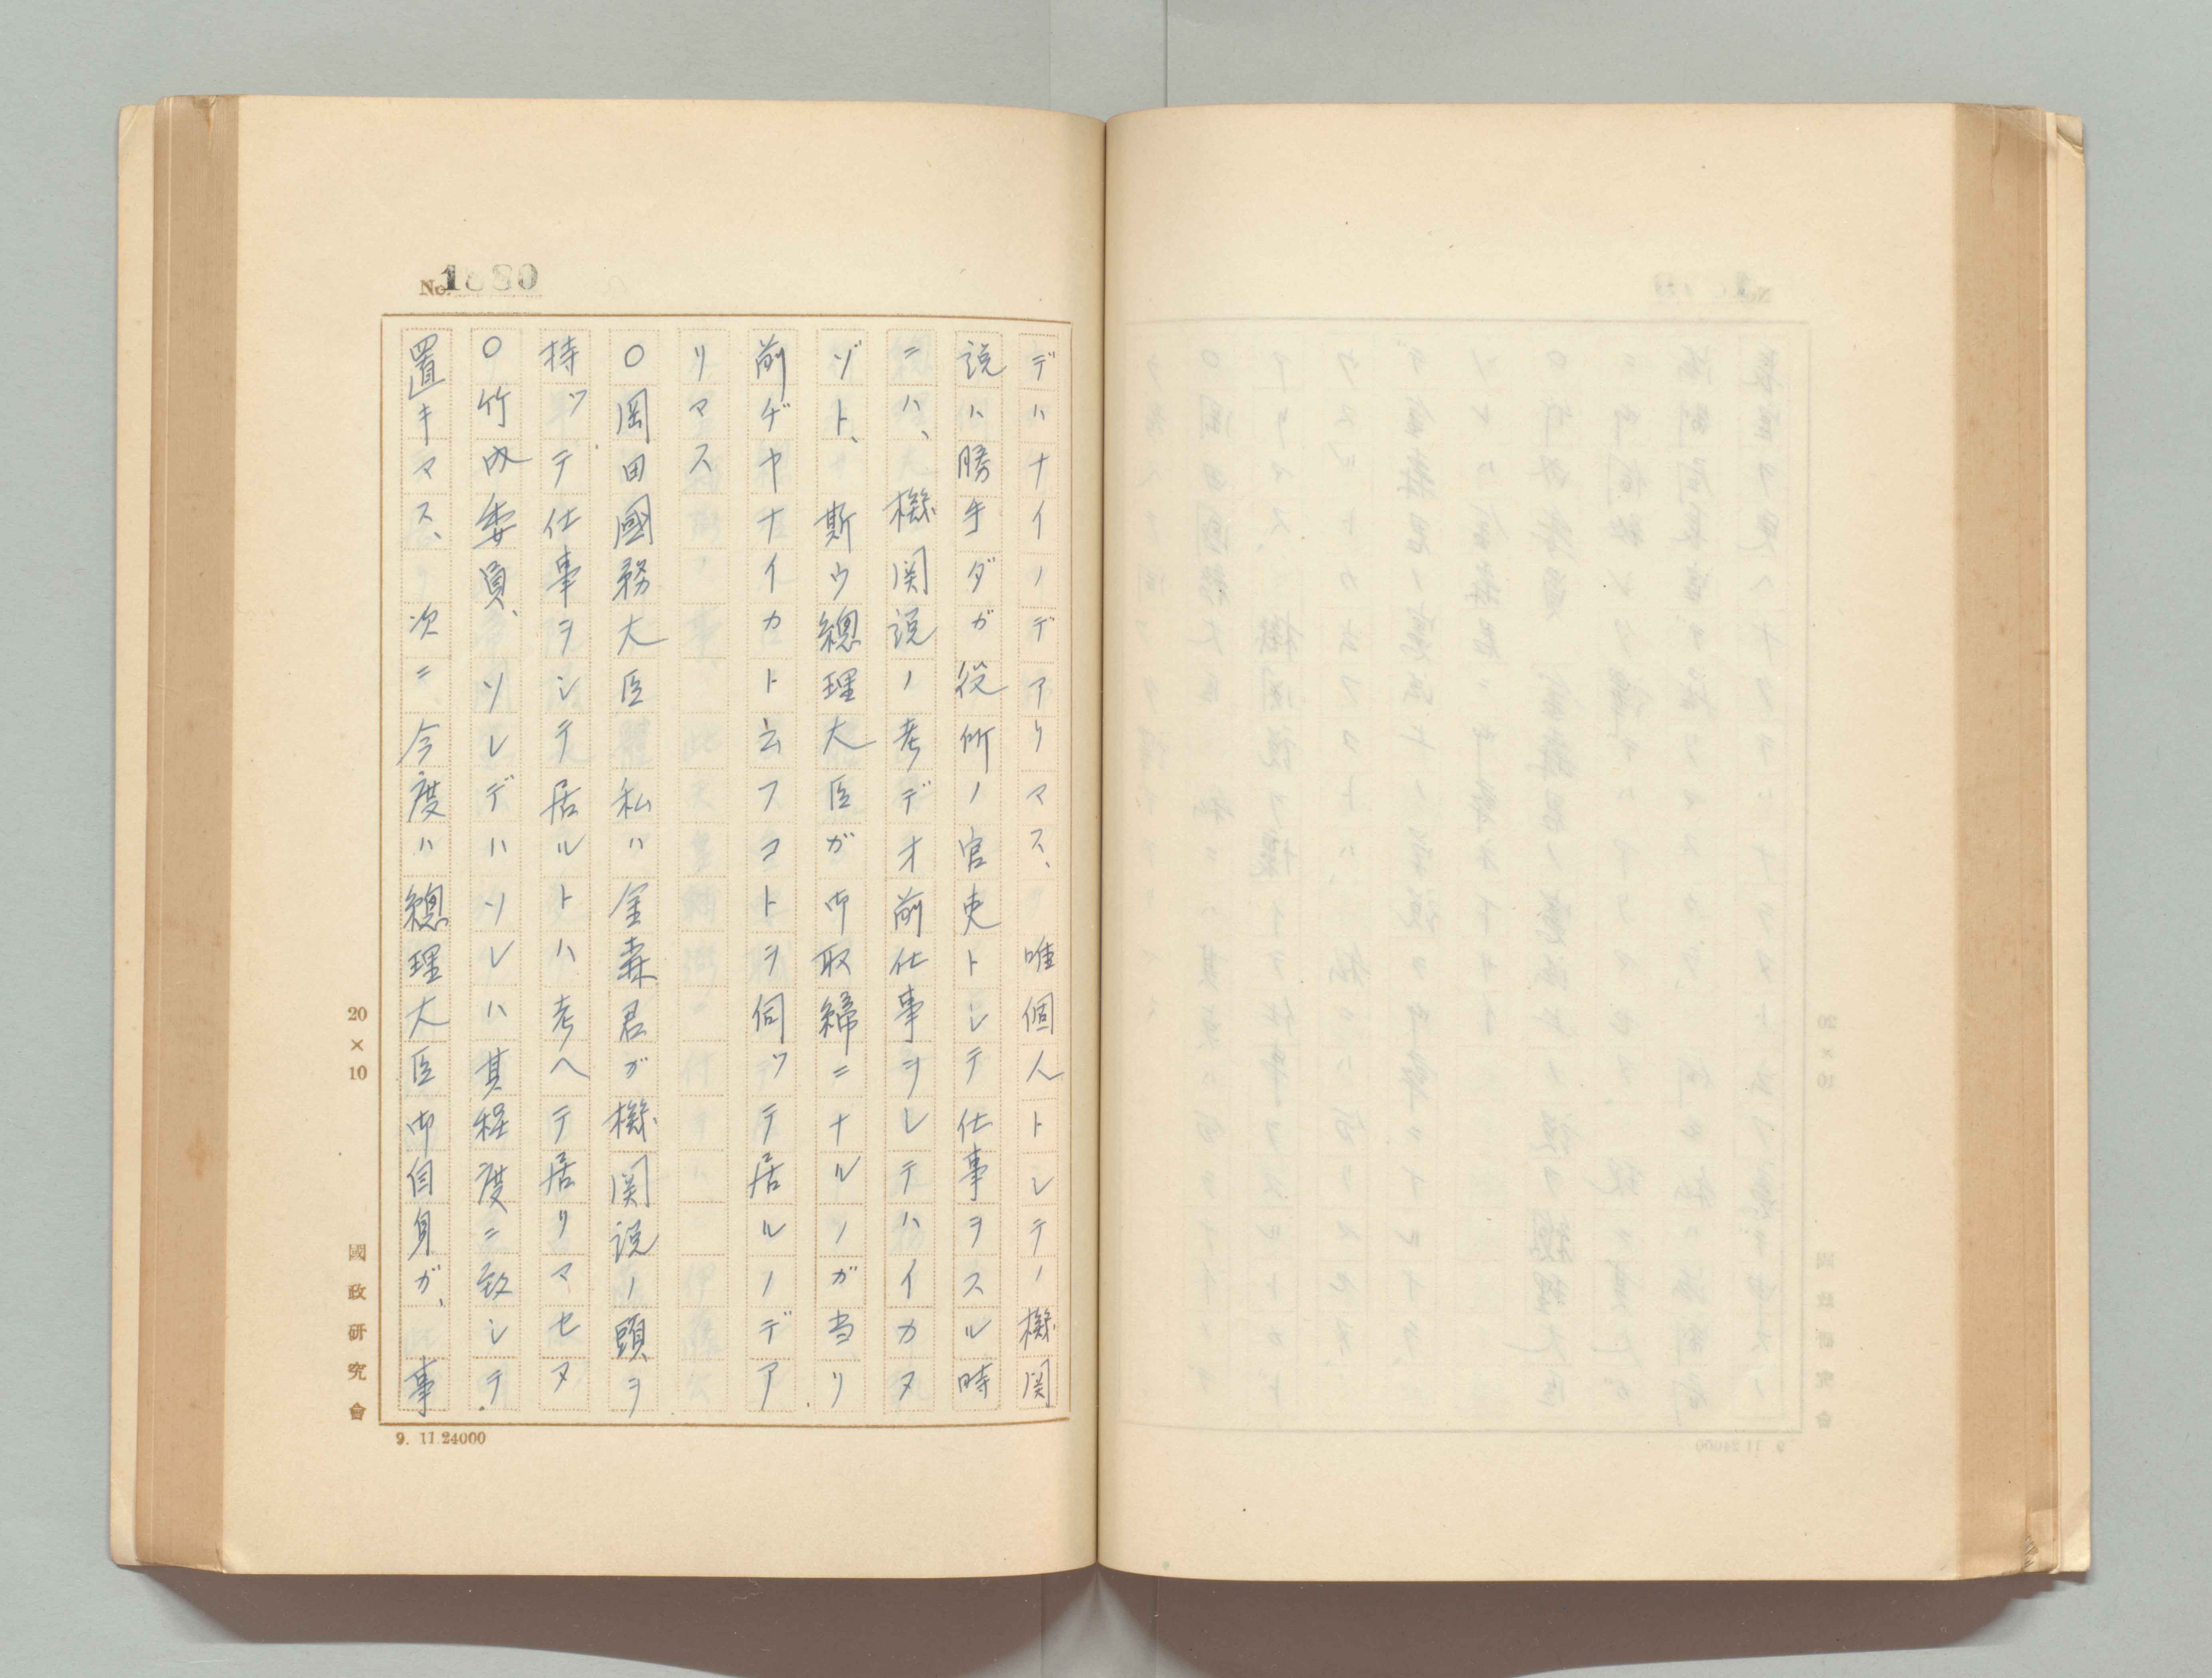 No. 1880
デハナイノデアリマス、唯個人トシテノ機関
説ハ勝手ダガ役所ノ官吏トシテ仕事ヲスル時
ニハ、機関説ノ考デオ前仕事ヲシテハイカヌ
ゾト、斯ウ總理大臣ガ御取締ニナルノガ当リ
前ヂヤナイカト云フコトヲ伺ツテ居ルノデア
リマス
○岡田國務大臣 私ハ金森君ガ機関説ノ頭ヲ
持ツテ仕事ヲシテ居ルトハ考ヘテ居リマセヌ
○竹内委員、ソレデハソレハ其程度ニ致シテ
置キマス、次ニ今度ハ總理大臣御自身ガ、事
20×10
國政研究會
9. 11.24000